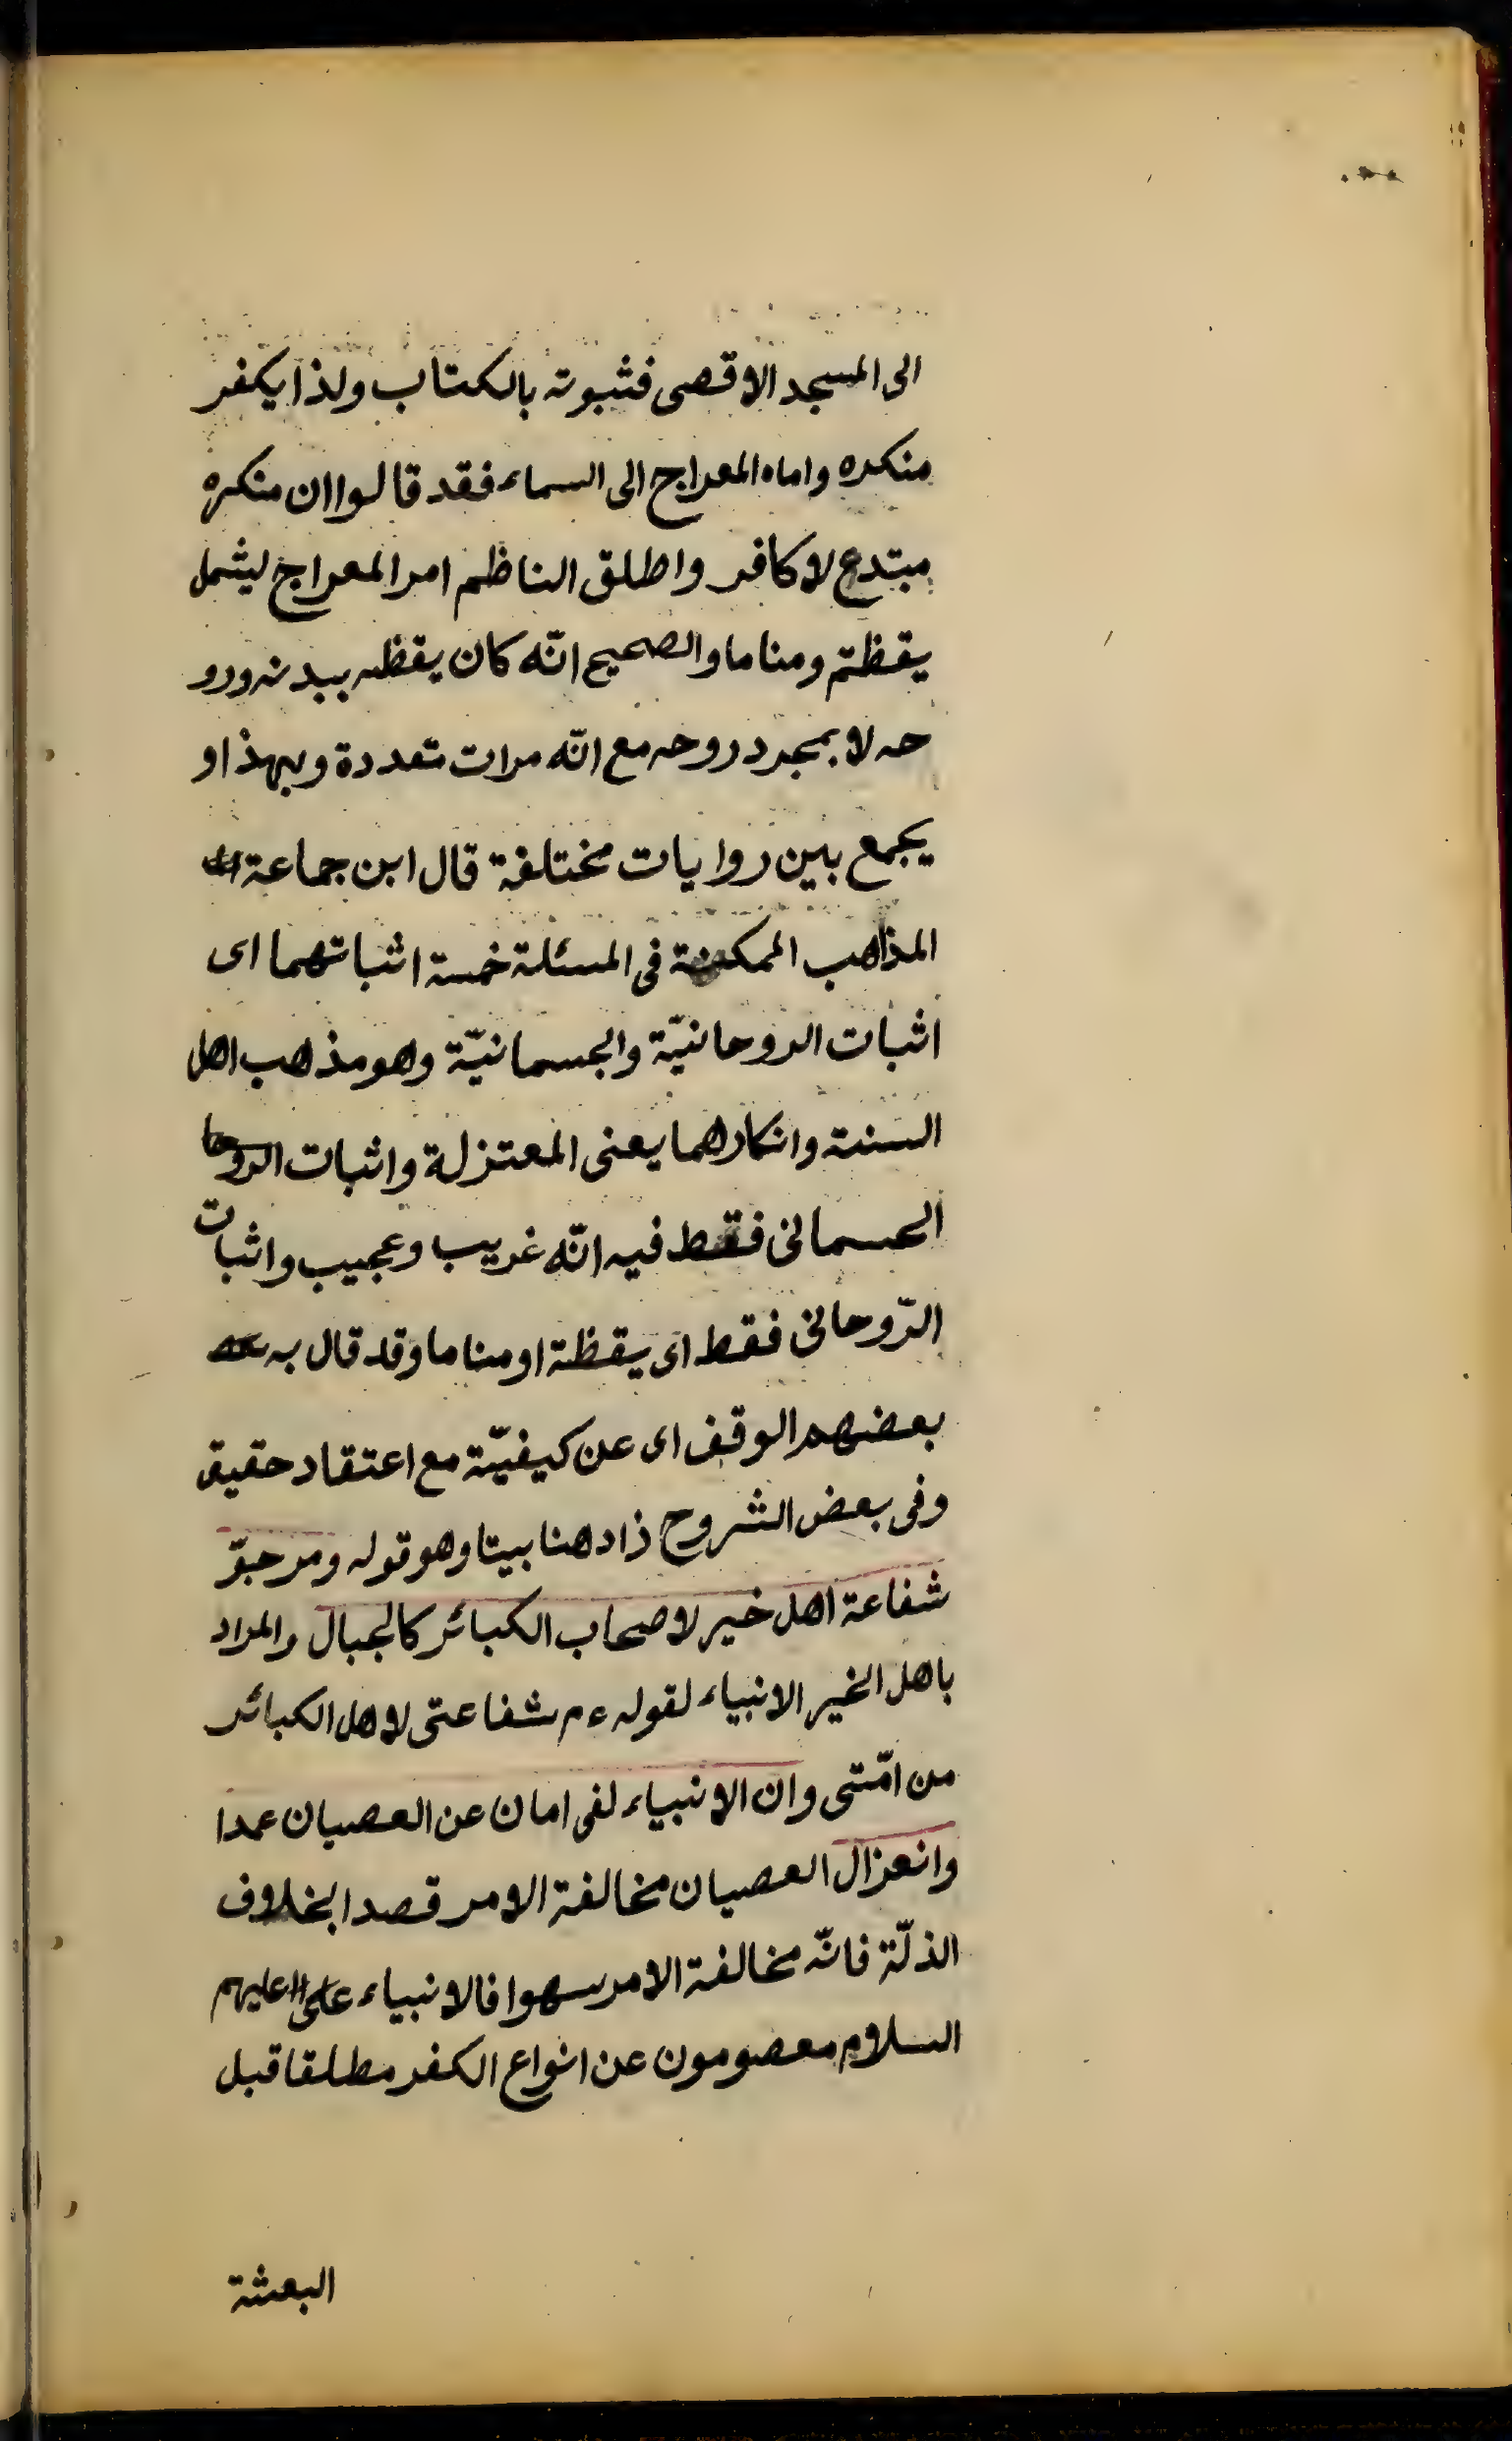 الى المسجد الاقصى فثبوته بالكتاب ولذا يكفر
منكره واما المعراج الى السماء فقد قالوا ان منكره
مبتدع لا كافر واطلق الناظم امر المعراج ليشمل
يقظته ومناما والصحيح انّه كان يقظه ببدنه ورو
حه لا بمجرد روحه مع انّه مرات متعددة وبهذا و
يجمع بين روايات مختلفة قال ابن جماعة
المذاهب الممكنة فى المسئلة خمسة اثباتهما اى
اثبات الروحانيّة والجسمانيّة وهو مذهب اهل
السنة وانكارهما يعنى المعتزلة واثبات الروحا
الجسمانى فقط فيه انّه غريب وعجيب واثبات
الرّوحانى فقط اى يقظة او مناما وقد قال به
بعضهم الوقف اى عن كيفيّة مع اعتقاد حقيقة
وفى بعض الشروح زاد هنا بيتا وهو قوله ومرجوّ
شفاعة اهل خير لاصحاب الكبائر كالجبال والمراد
باهل الخير الانبياء لقوله ءم شفاعتى لاهل الكبائر
من امّتى وان الانبياء لفى امان عن العصيان عمدا
وانعزال العصيان مخالفة الامر قصدا بخلاف
الذلّة فانّه مخالفة الامر سهوا فالانبياء عليهم
السلام معصومون عن انواع الكفر مطلقا قبل
البعثة